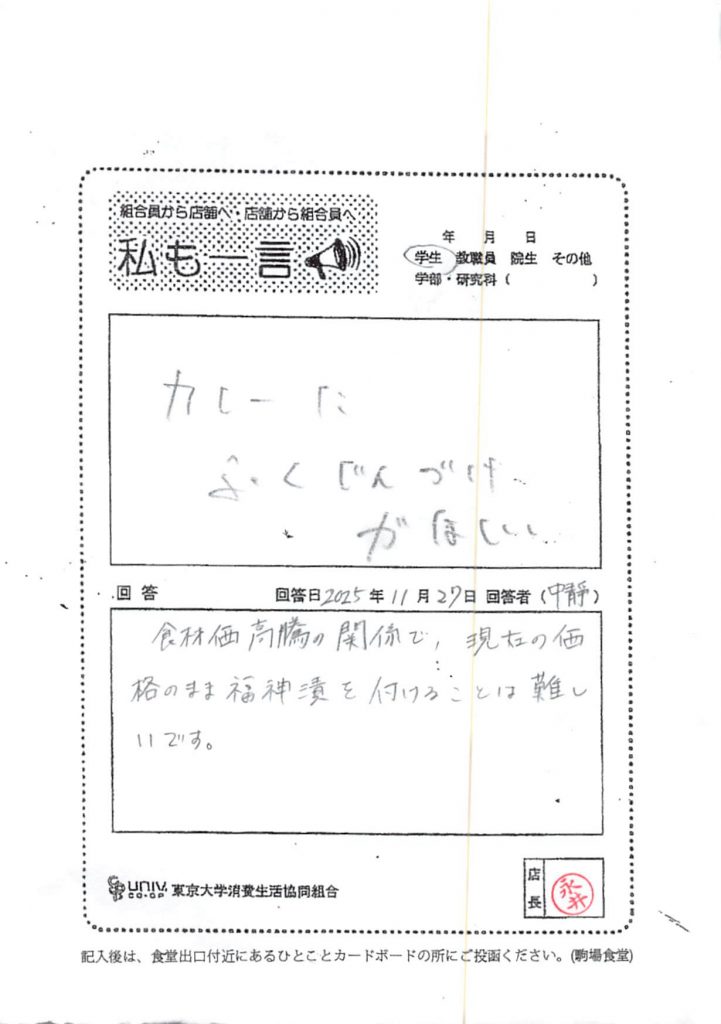 組合員から店舗へ・店舗から組合員へ
私も一言
年 月 日
学生 教職員 院生 その他
学部・研究科( )
カレーに
ふくじんづけ
がほしい
回答 回答日2025年11月27日 回答者(中静)
食材価高騰の関係で、現在の価
格のまま福神漬を付けることは難し
いです。
UNIV. CO-OP 東京大学消費生活協同組合
店長 永井
記入後は、食堂出口付近にあるひとことカードボードの所にご投函ください。(駒場食堂)